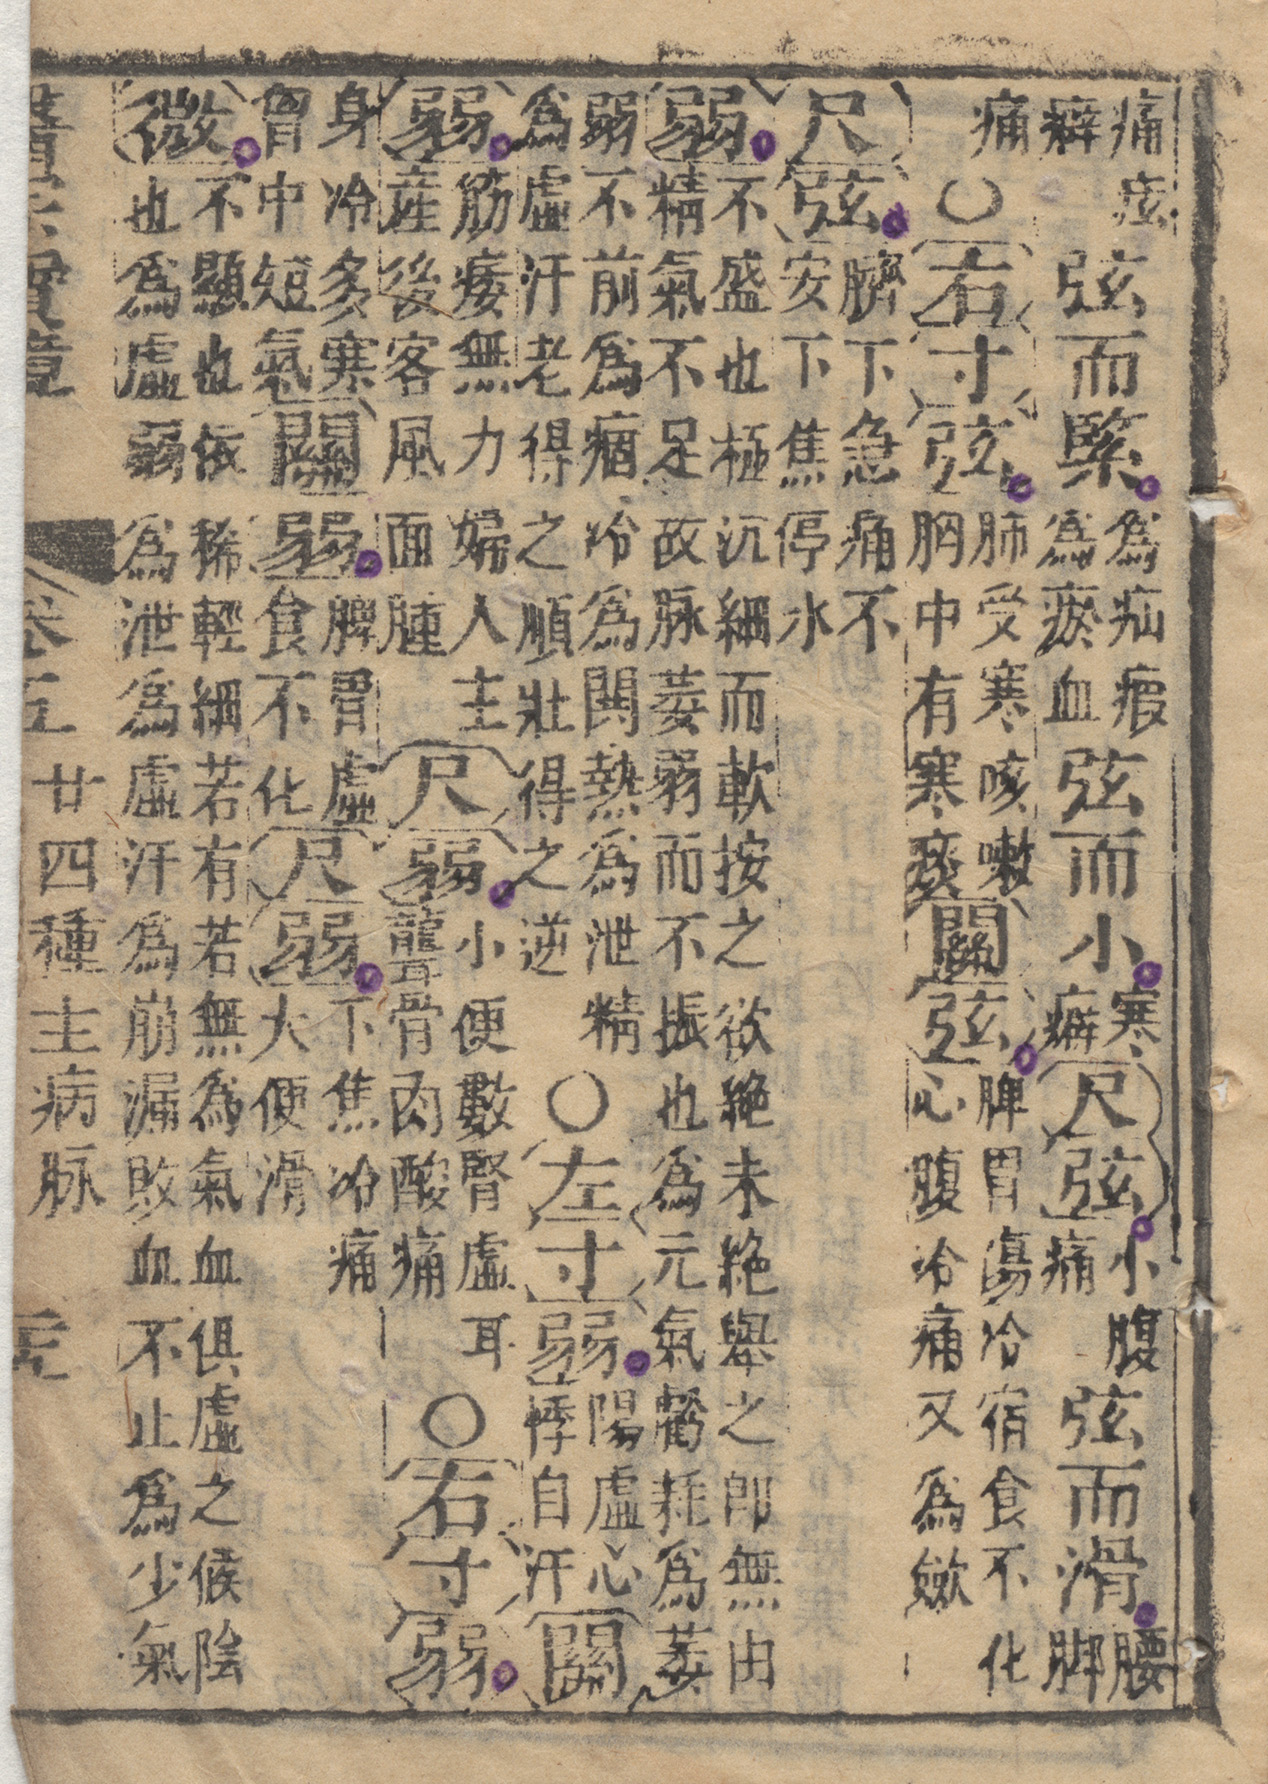 痛痃癖弦而緊爲疝瘕爲瘀血弦而小寒癖尺弦小腹痛弦而滑腰脚
痛○右寸弦肺受寒咳嗽胸中有寒痰關弦脾胃傷冷宿食不化心腹冷痛又爲
尺弦臍下急痛不安下焦停水
弱不盛也極沉細而軟按之欲絶未絶舉之卽無由精氣不足故脉萎弱而不振也爲元氣虧耗爲萎
弱不前爲痼冷爲関熱爲泄精爲虛汗老得之順壯得之逆○左寸弱陽虛心悸自汗關
弱筋痿無力婦人主産後客風面腫尺弱小便數腎虛耳聾骨肉酸痛○右寸弱
身冷多寒胷中短氣關弱脾胃虛食不化尺弱下焦冷痛大便滑
微不顯也依稀輕細若有若無爲氣血俱虛之候陰也爲虛弱爲泄爲虛汗爲崩漏敗血不止爲少氣
卷五 廿四種主病脉